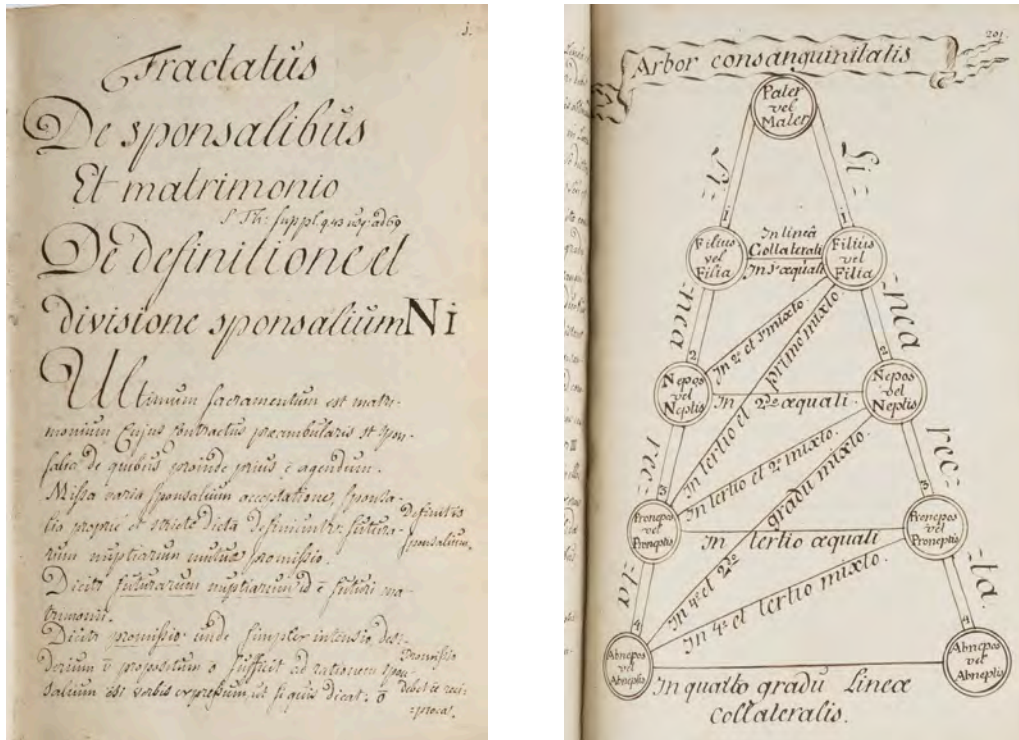 j.
Tractatus
De sponsalibus
Et matrimonio
S. Th: suppl. q. 43 usq ad 69
De definitione et
divisione sponsalium Ni
Ultimum sacramentum est matri-
monium Cujus contractus præambularis st spon-
salia de quibus proinde prius ē agendum.
Missa varia sponsalium acceptatione, sponsa-
lia propriè et strictè dicta definiuntr: futura-
rum nuptiarum mutua promissio.
Definitio
sponsalium.
Dicitr futurarum nuptiarum id ē futuri ma-
trimonii.
Dicitr promissio unde simplex intensio, desi-
derium v propositum ō sufficit ad rationem spon-
salium nisi verbis expressum, ut si quis dicat: ō
Promissio
debet ēe reci-
=proca.
201.
Arbor consanguinitatis
Pater
vel
Mater
Li=
=nea
rec=
=ta.
Li=
=nea
rec=
=ta
1
1
Filius
vel
Filia
In lineâ
Collaterali
In 1º æquali
Filius
vel
Filia
In 2º et 1º mixto.
In tertio et primo mixto
2
2
Nepos
vel
Neptis
In 2do æquali.
Nepos
vel
Neptis
In tertio et 2º mixto.
In 4º et 2do gradu mixto.
3
3
Pronepos
vel
Proneptis
In tertio æquali
Pronepos
vel
Proneptis
In 4º et tertio mixto.
4
4
Abnepos
vel
Abneptis
Abnepos
vel
Abneptis
In quarto gradu Lineæ
Collateralis.